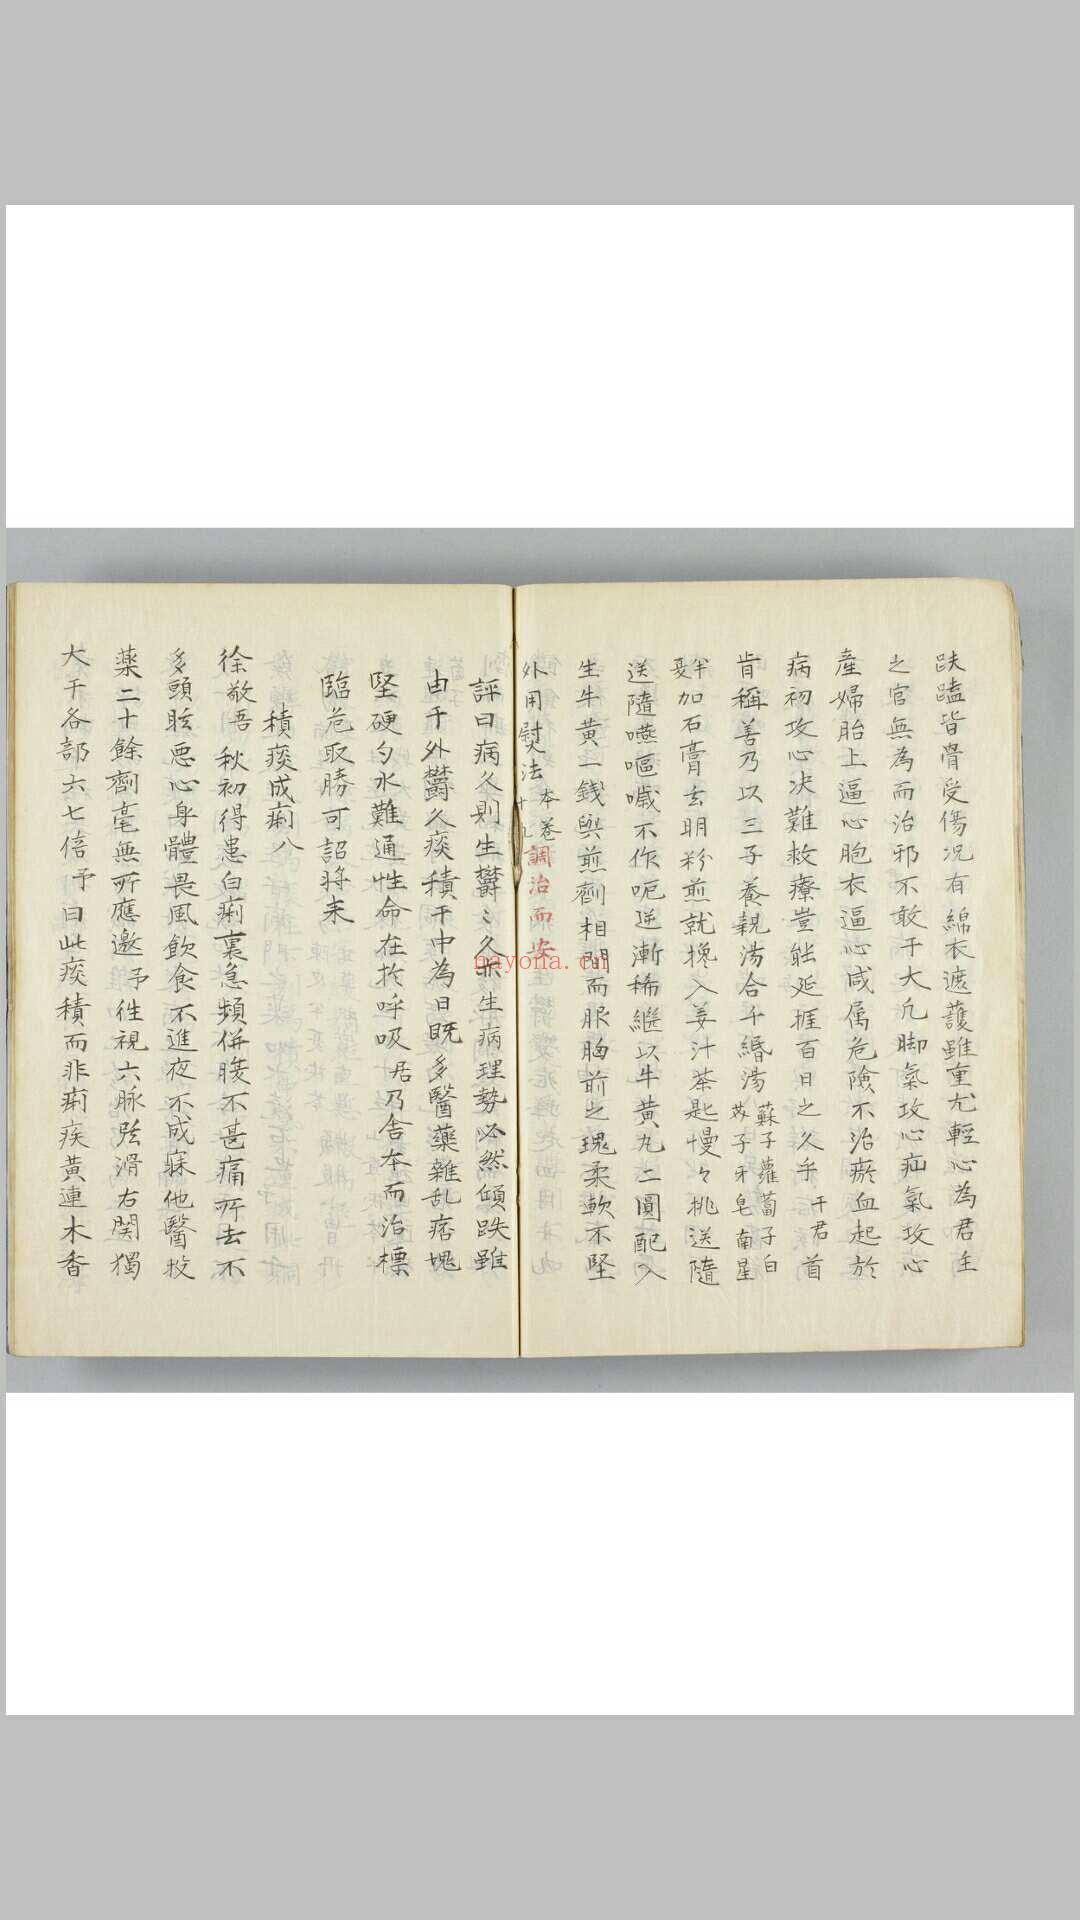 趺蹟皆骨受傷况有綿衣遮護雖重尤輕心為君主
之官無為而治邪不敢于大凢脚氣攻心疝氣攻心
產婦胎上逼心胞衣逼心咸属危險不治瘀血起於
病初攻心决難救療豈能延捱百日之久乎 干君 首
肯稱善乃以三子養親湯合千緡湯 蘇子蘿蔔子白
芥子牙皂南星
半夏加石膏玄明粉煎就攙入姜汁茶匙慢々挑送隨
送隨嚥嘔噦不作呃逆漸稀繼以牛黄丸二圓配入
生牛黄一錢與煎劑相間而服胸前之塊柔軟不堅
外用熨法 本卷
十九 調治而安
評曰病久則生欝〻久亦生病理勢必然傾跌雖
由于外欝久痰積于中為日既多醫藥雜乱痞塊
堅硬勺水難通性命在扵呼吸 居乃舍本而治標
臨危取勝可詔將来
積痰成痢八
徐敬吾 秋初得患白痢裏急頻併腹不甚痛所去不
多頭眩悪心身體畏風飲食不進夜不成寐他醫投
薬二十餘劑毫無所應邀 予徃視六脉弦滑右関獨
大于各部六七倍 予 曰此痰積而非痢疾黄連木香
nayona.cn